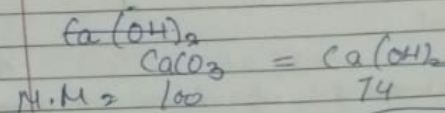 Ca(OH)₂
CaCO₃ = Ca(OH)₂
M.M = 100 74